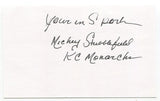 Your in Sport
Mickey Stubblefield
K C Monarchs